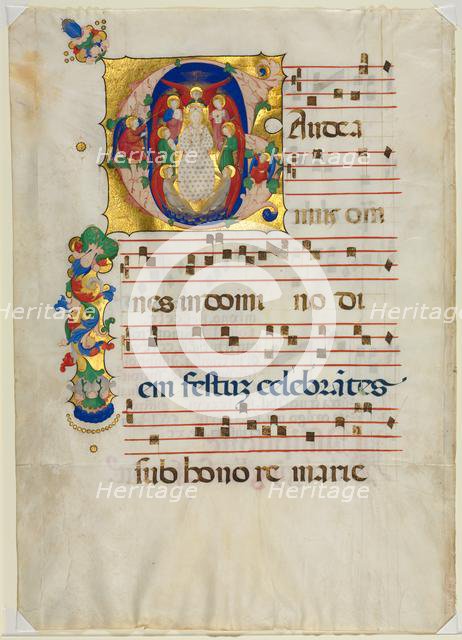 Audea
mus om
nes in domi no di
em festuz celebrātes
sub hono re marie
Heritage
Heritage
Heritage
Heritage
Heritage
Heritage
Heritage
Heritage